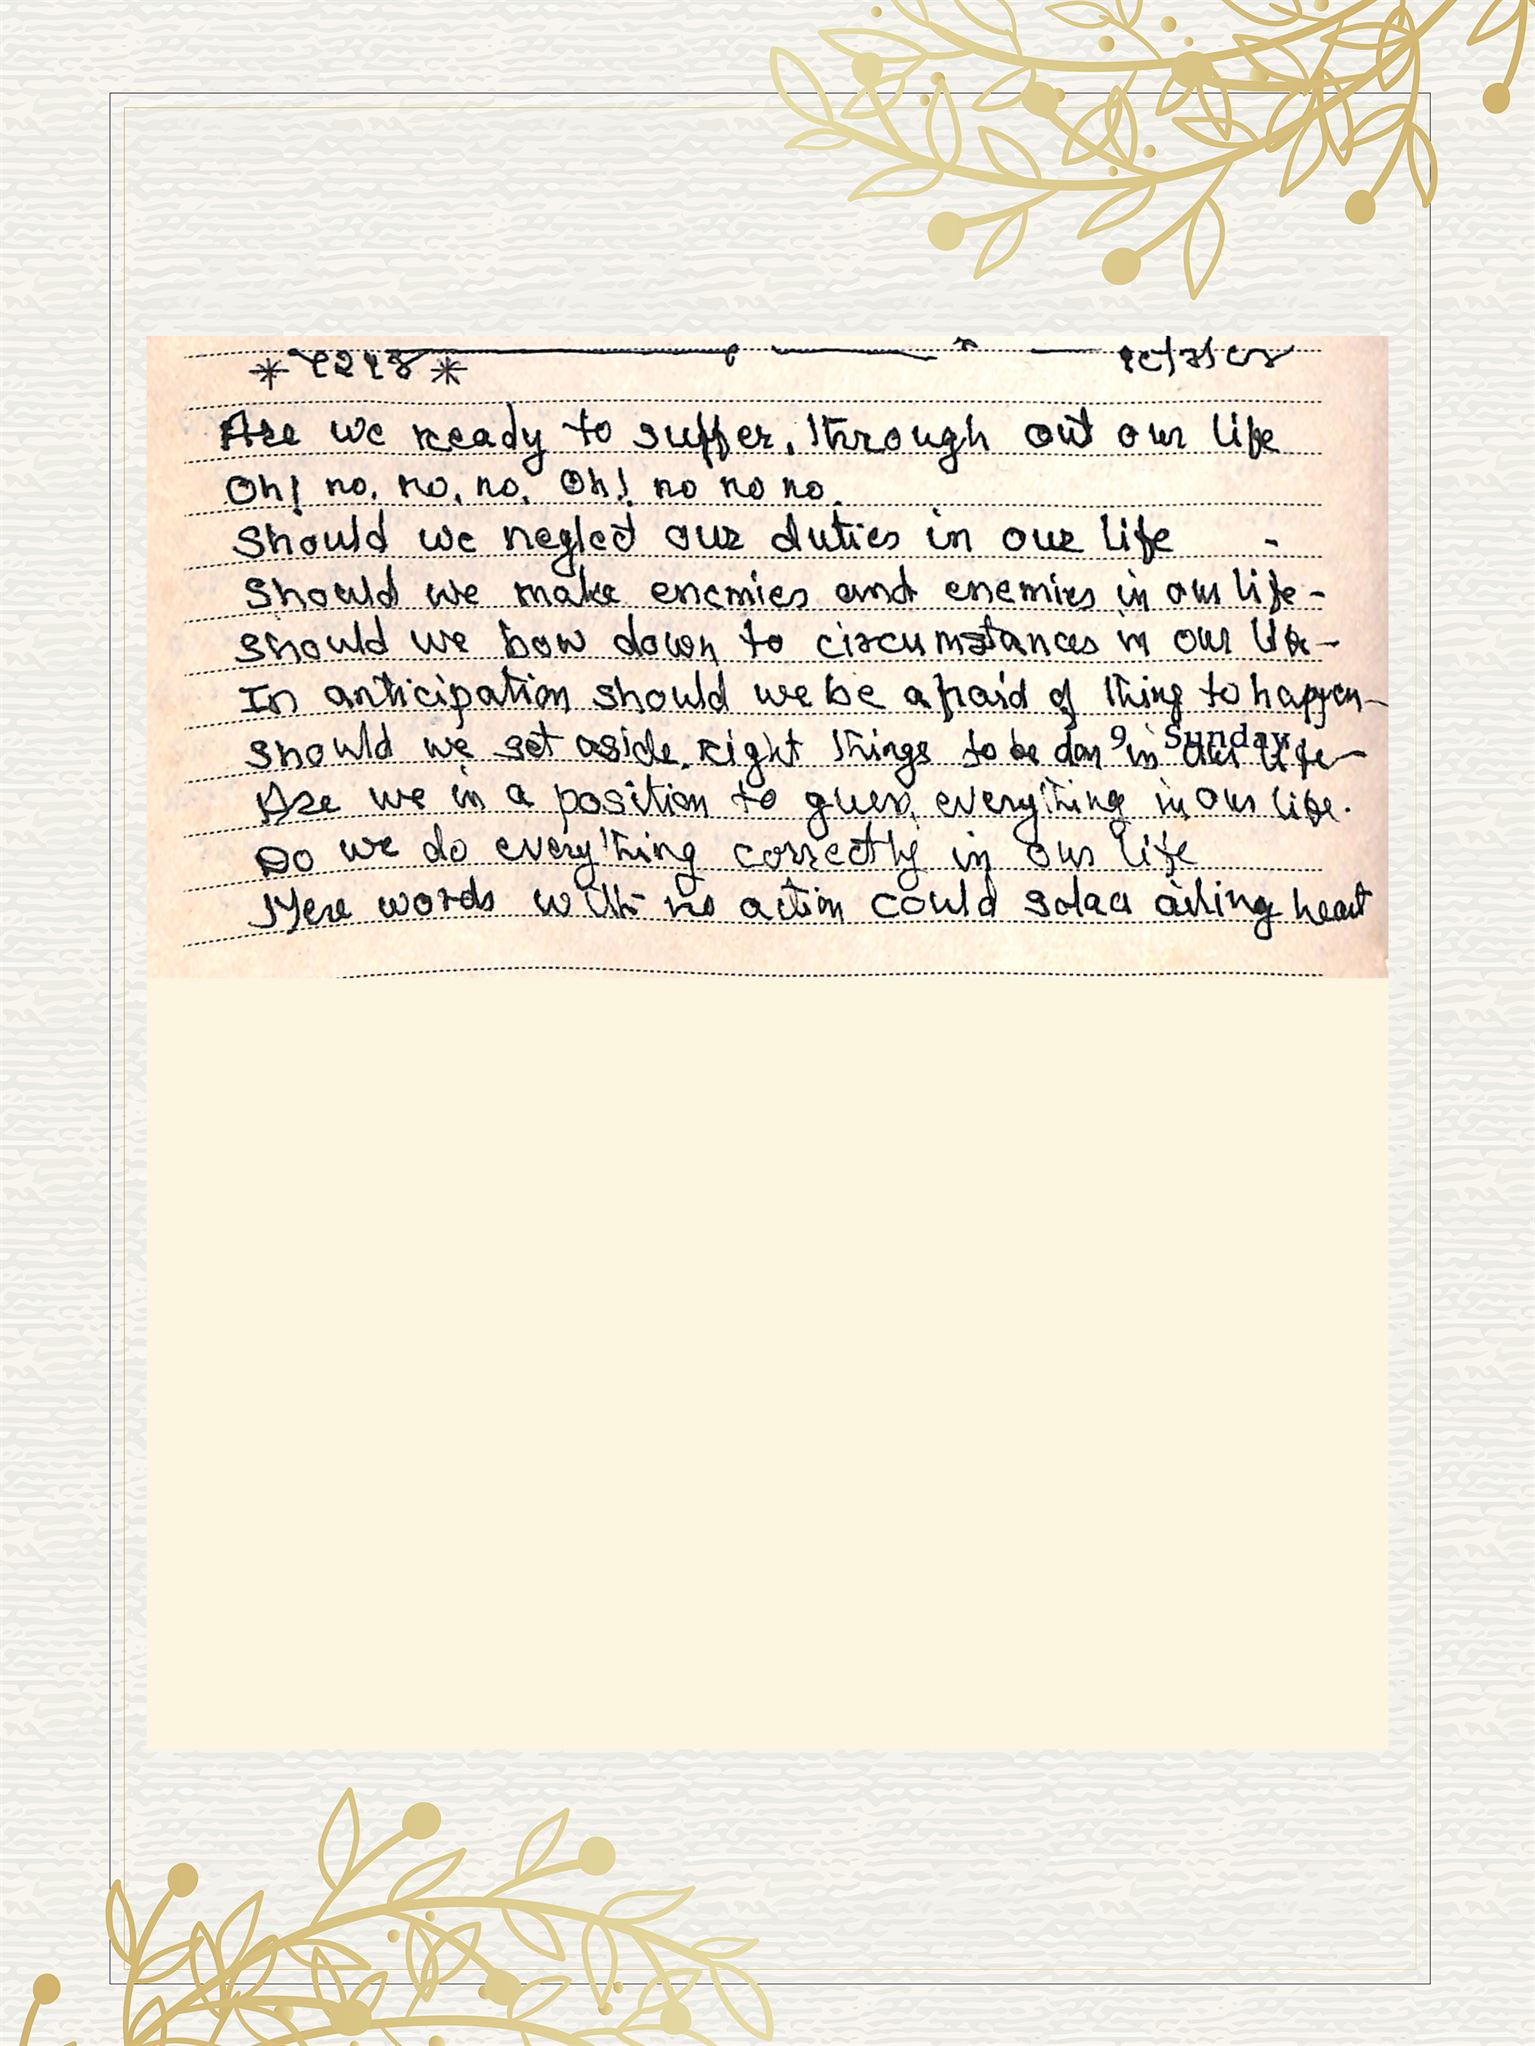 Are we ready to suffer, through out our life
Oh! no, no, no, Oh! no no no.
Should we neglect our duties in our life -
Should we make enemies and enemies in our life -
Should we bow down to circumstances in our life -
In anticipation should we be afraid of thing to happen -
9 Sunday
Should we set aside, right things to be don in our life -
Are we in a position to guess, everything in our life.
Do we do everything correctly in our life
Mere words with no action could solace ailing heart